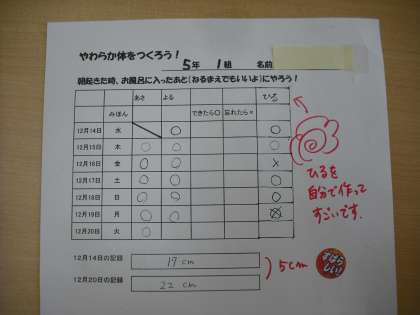 やわらか体をつくろう！
5年 1組 名前
朝起きた時、お風呂に入ったあと(ねるまえでもいいよ)にやろう！
あさ よる ひる
みほん できたら○ 忘れたら×
12月14日 水 ○ ○
12月15日 木 ○ ○ ○
12月16日 金 ○ ○ ×
12月17日 土 ○ ○ ○
12月18日 日 ○ ○ ○
12月19日 月 ○ ○
12月20日 火 ○
ひるを
自分で作って
すごいです。
12月14日の記録 17 cm
12月20日の記録 22 cm
5cm
すばらしい！